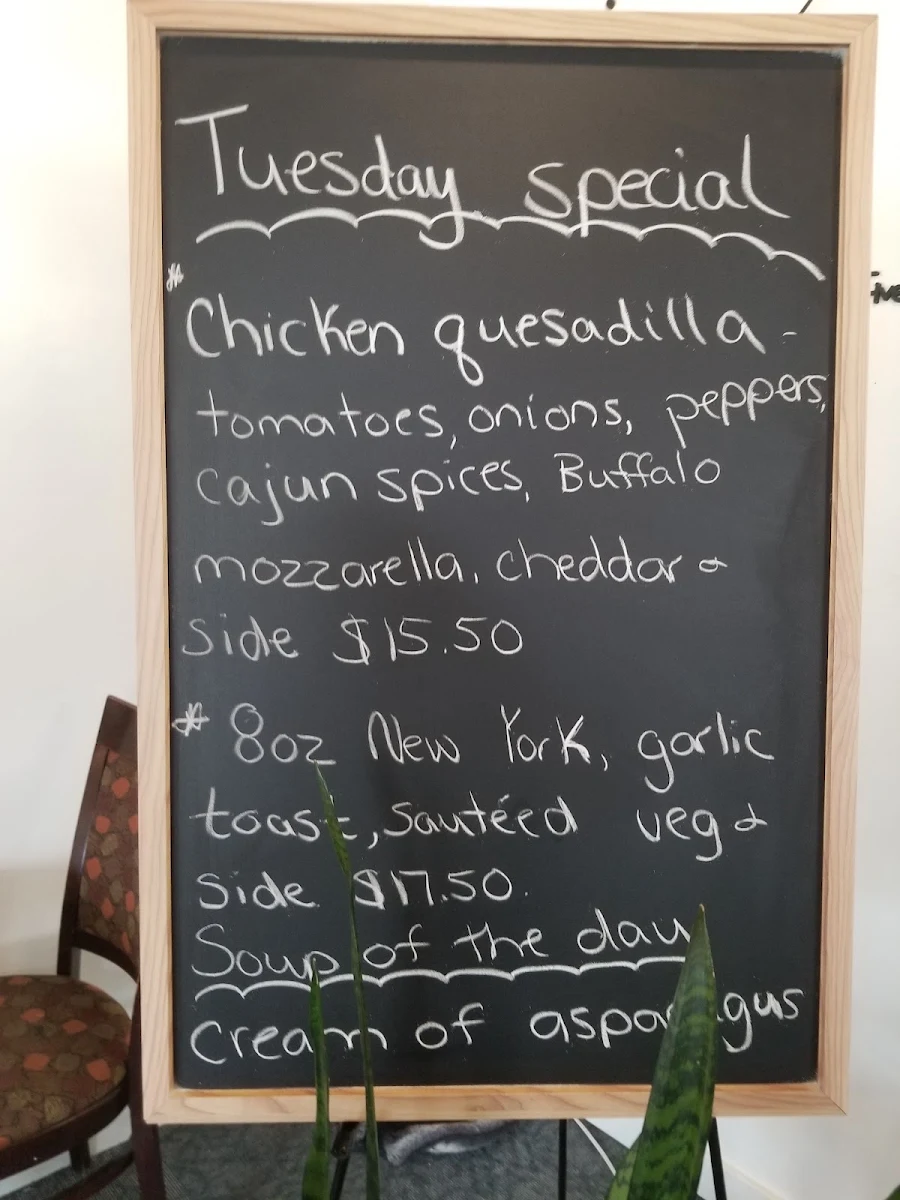 Tuesday special
*
Chicken quesadilla -
tomatoes, onions, peppers,
cajun spices, Buffalo
mozzarella, cheddar &
side $15.50
* 8oz New York, garlic
toast, sautéed veg &
side $17.50.
Soup of the day
cream of asparagus